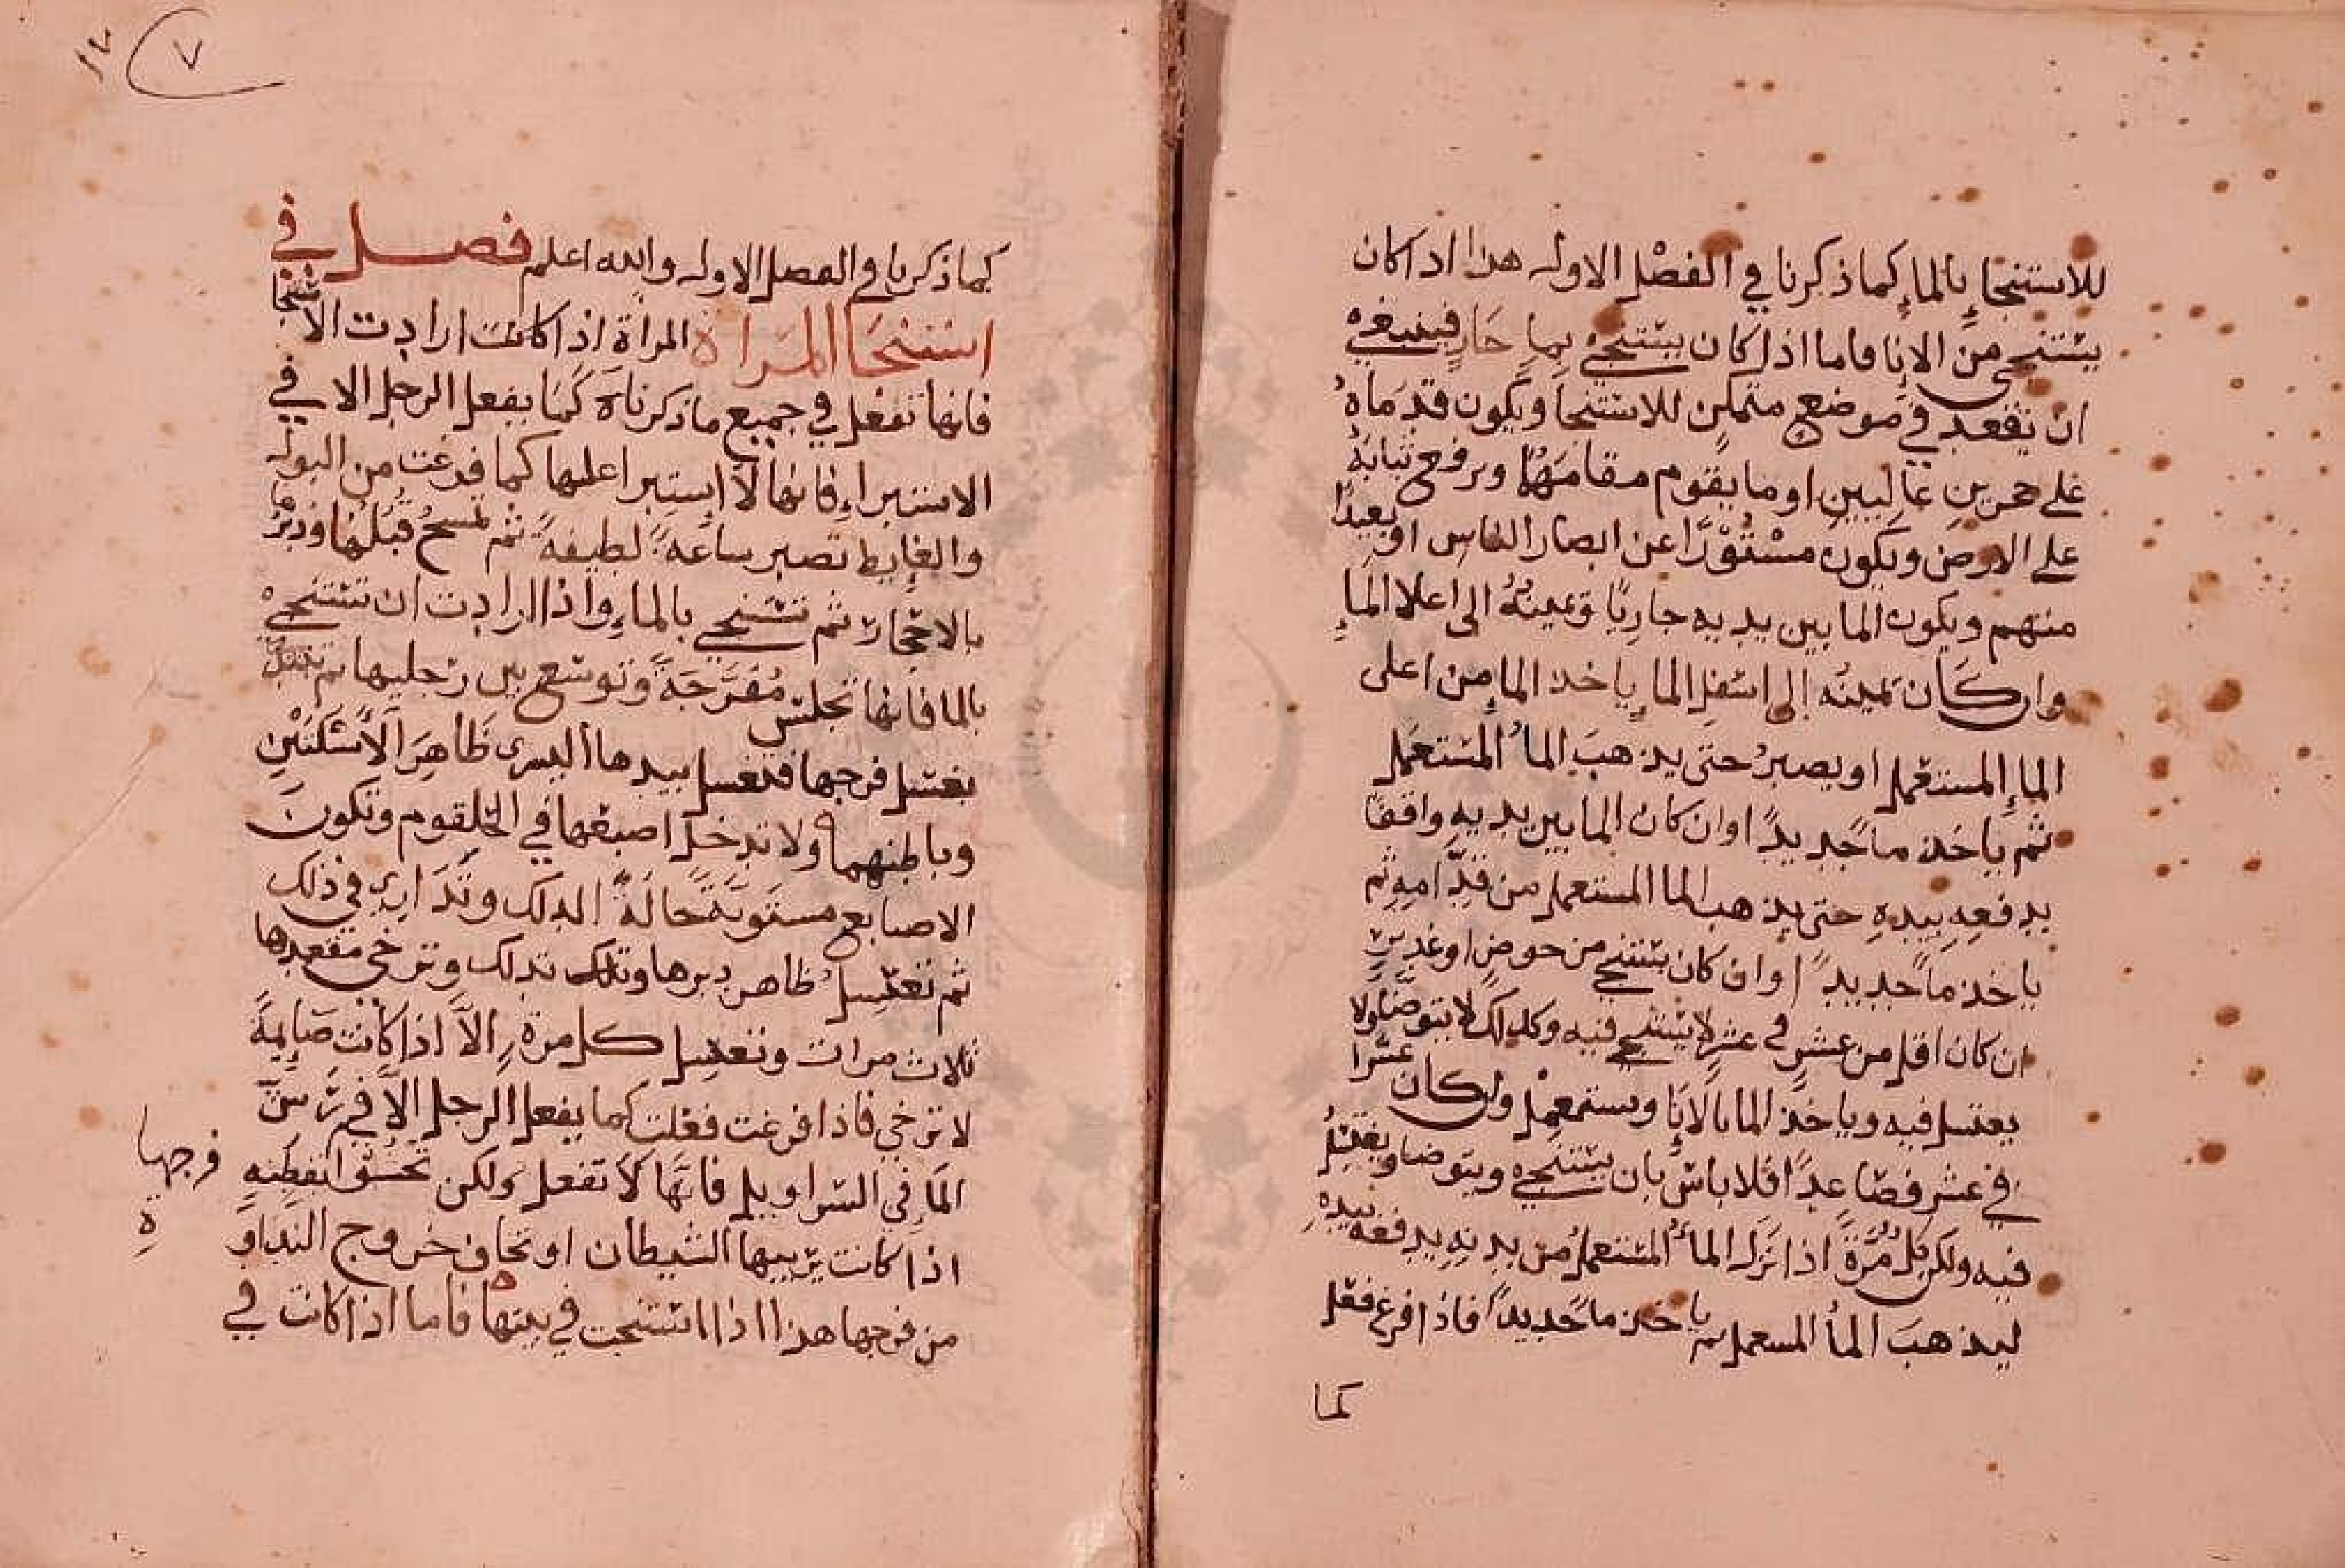 للاستنجاءِ بالماءِ كما ذكرنا في الفصْل الاول هذا اذا كان
يستنجي من الانا فاما اذا كان يستنجي بماءٍ جَارٍ فينبغي
ان يقعد في موضع متمكن للاستنجا ويكون قدماهُ
على حجرين عاليين او ما يقوم مقامَهُما ويرفع ثيابهُ
على الارض ويكون مسْتُوْرًا عن ابصار الناس او بعيدًا
منهم ويكون الما بين يديه جاريًا ويمينُهُ الى اعلا الماءِ
وان كَان يمينه الى اسفل الماءِ ياخذ الماء من اعلى
الماءِ المستعمل او يصبرُ حتى يذهبَ الماُ المستعمل
ثم ياخذ ماً جديداً او ان كان الما بين يديهِ واقفا
يدفعه بيدهِ حتى يذهب الما المستعمل من قدّامهِ ثم
ياخذ ماً جديداً او ان كان يستنجي من حوضٍ او غديرٍ
ان كان اقل من عشرٍ في عشرٍ لا يستنجي فيه وكذلك لا يتوضأ ولا
يغتسل فيه وياخذ الما بالانَا ويستعمل وان كان عشرا
في عشر فصَاعِداً فلا باسْ بان يستنجي ويتوضا ويغتسلُ
فيه ولكن كل مُرَّةً اذا نَزَلَ الماُ المستعملُ من بدنهِ يدفعه بيدهِ
ليذهبَ الماُ المستعمل ثم ياخذ ماً جديداً فاذا فرغ فعل
كما
٧
كما ذكرنا في الفصل الاول والله اعلم فصل في
استنجا المرأة المراة اذا كانت ارادت الاستنجا
فانها تفعل في جميع ما ذكرناهَ كَمَا يفعل الرجل الا في
الاستبراءِ فانها لا استبرا عليها كما فرغت من البول
والغايط تصبر ساعةً لطيفةً ثم تمسحُ قُبُلَها ودبرها
بالاحجار ثم تستنجي بالماءِ واذا ارادت ان تستنجي
بالما فانها تجلسْ مُفَرَّجَةً وتوسّع بين رجليها ثم
تغتسل فرجها فتغسل بيدها اليسرى ظاهِرَ الاَسْكَتَيْنِ
وباطنهما ولا تدخل اصبعها في الحلقوم وتكون
الاصابع مستويةً حالة الدلك وتُدَاري في ذلك
ثم تغتسل ظاهر دبرها وتلك تدلك وترخي مقعدها
ثلاث مرات وتغسل كل مرة الاَّ اذا كانت صَايمةً
لا ترخي فاذا فرغت فعلت كما يفعل الرجل الا في رَشِّ
الماَءِ في السراويل فانَّها لا تفعل ولكن تحشوا بقطنه فرجها
اذا كانت يريبها الشيطان او تخاف خروج النداوَ ةِ
من فرجها هذا اذا استنجت في بيتها فاما اذا كانت في